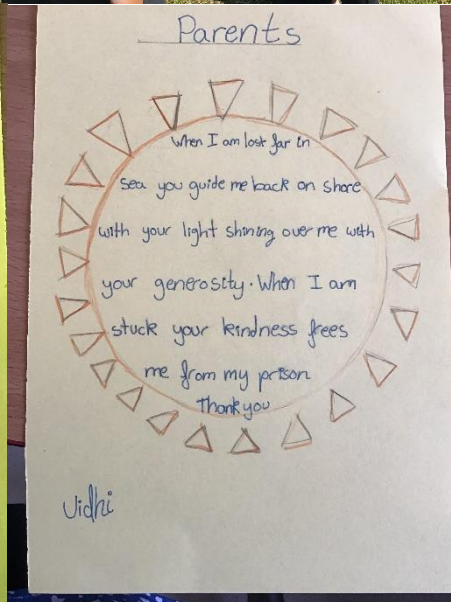 Parents
When I am lost far in
sea you guide me back on shore
with your light shining over me with
your generosity. When I am
stuck your kindness frees
me from my prison
Thank you
Vidhi